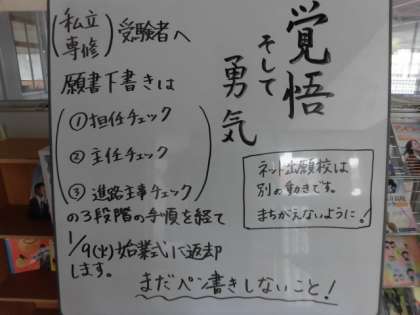 覚悟
そして
勇気
(私立
専修)受験者へ
願書下書きは
①担任チェック
②主任チェック
③進路主事チェック
の3段階の手順を経て
1/9(火)始業式に返却
します。
まだペン書きしないこと!
ネット出願校は
別の動きです。
まちがえないように!